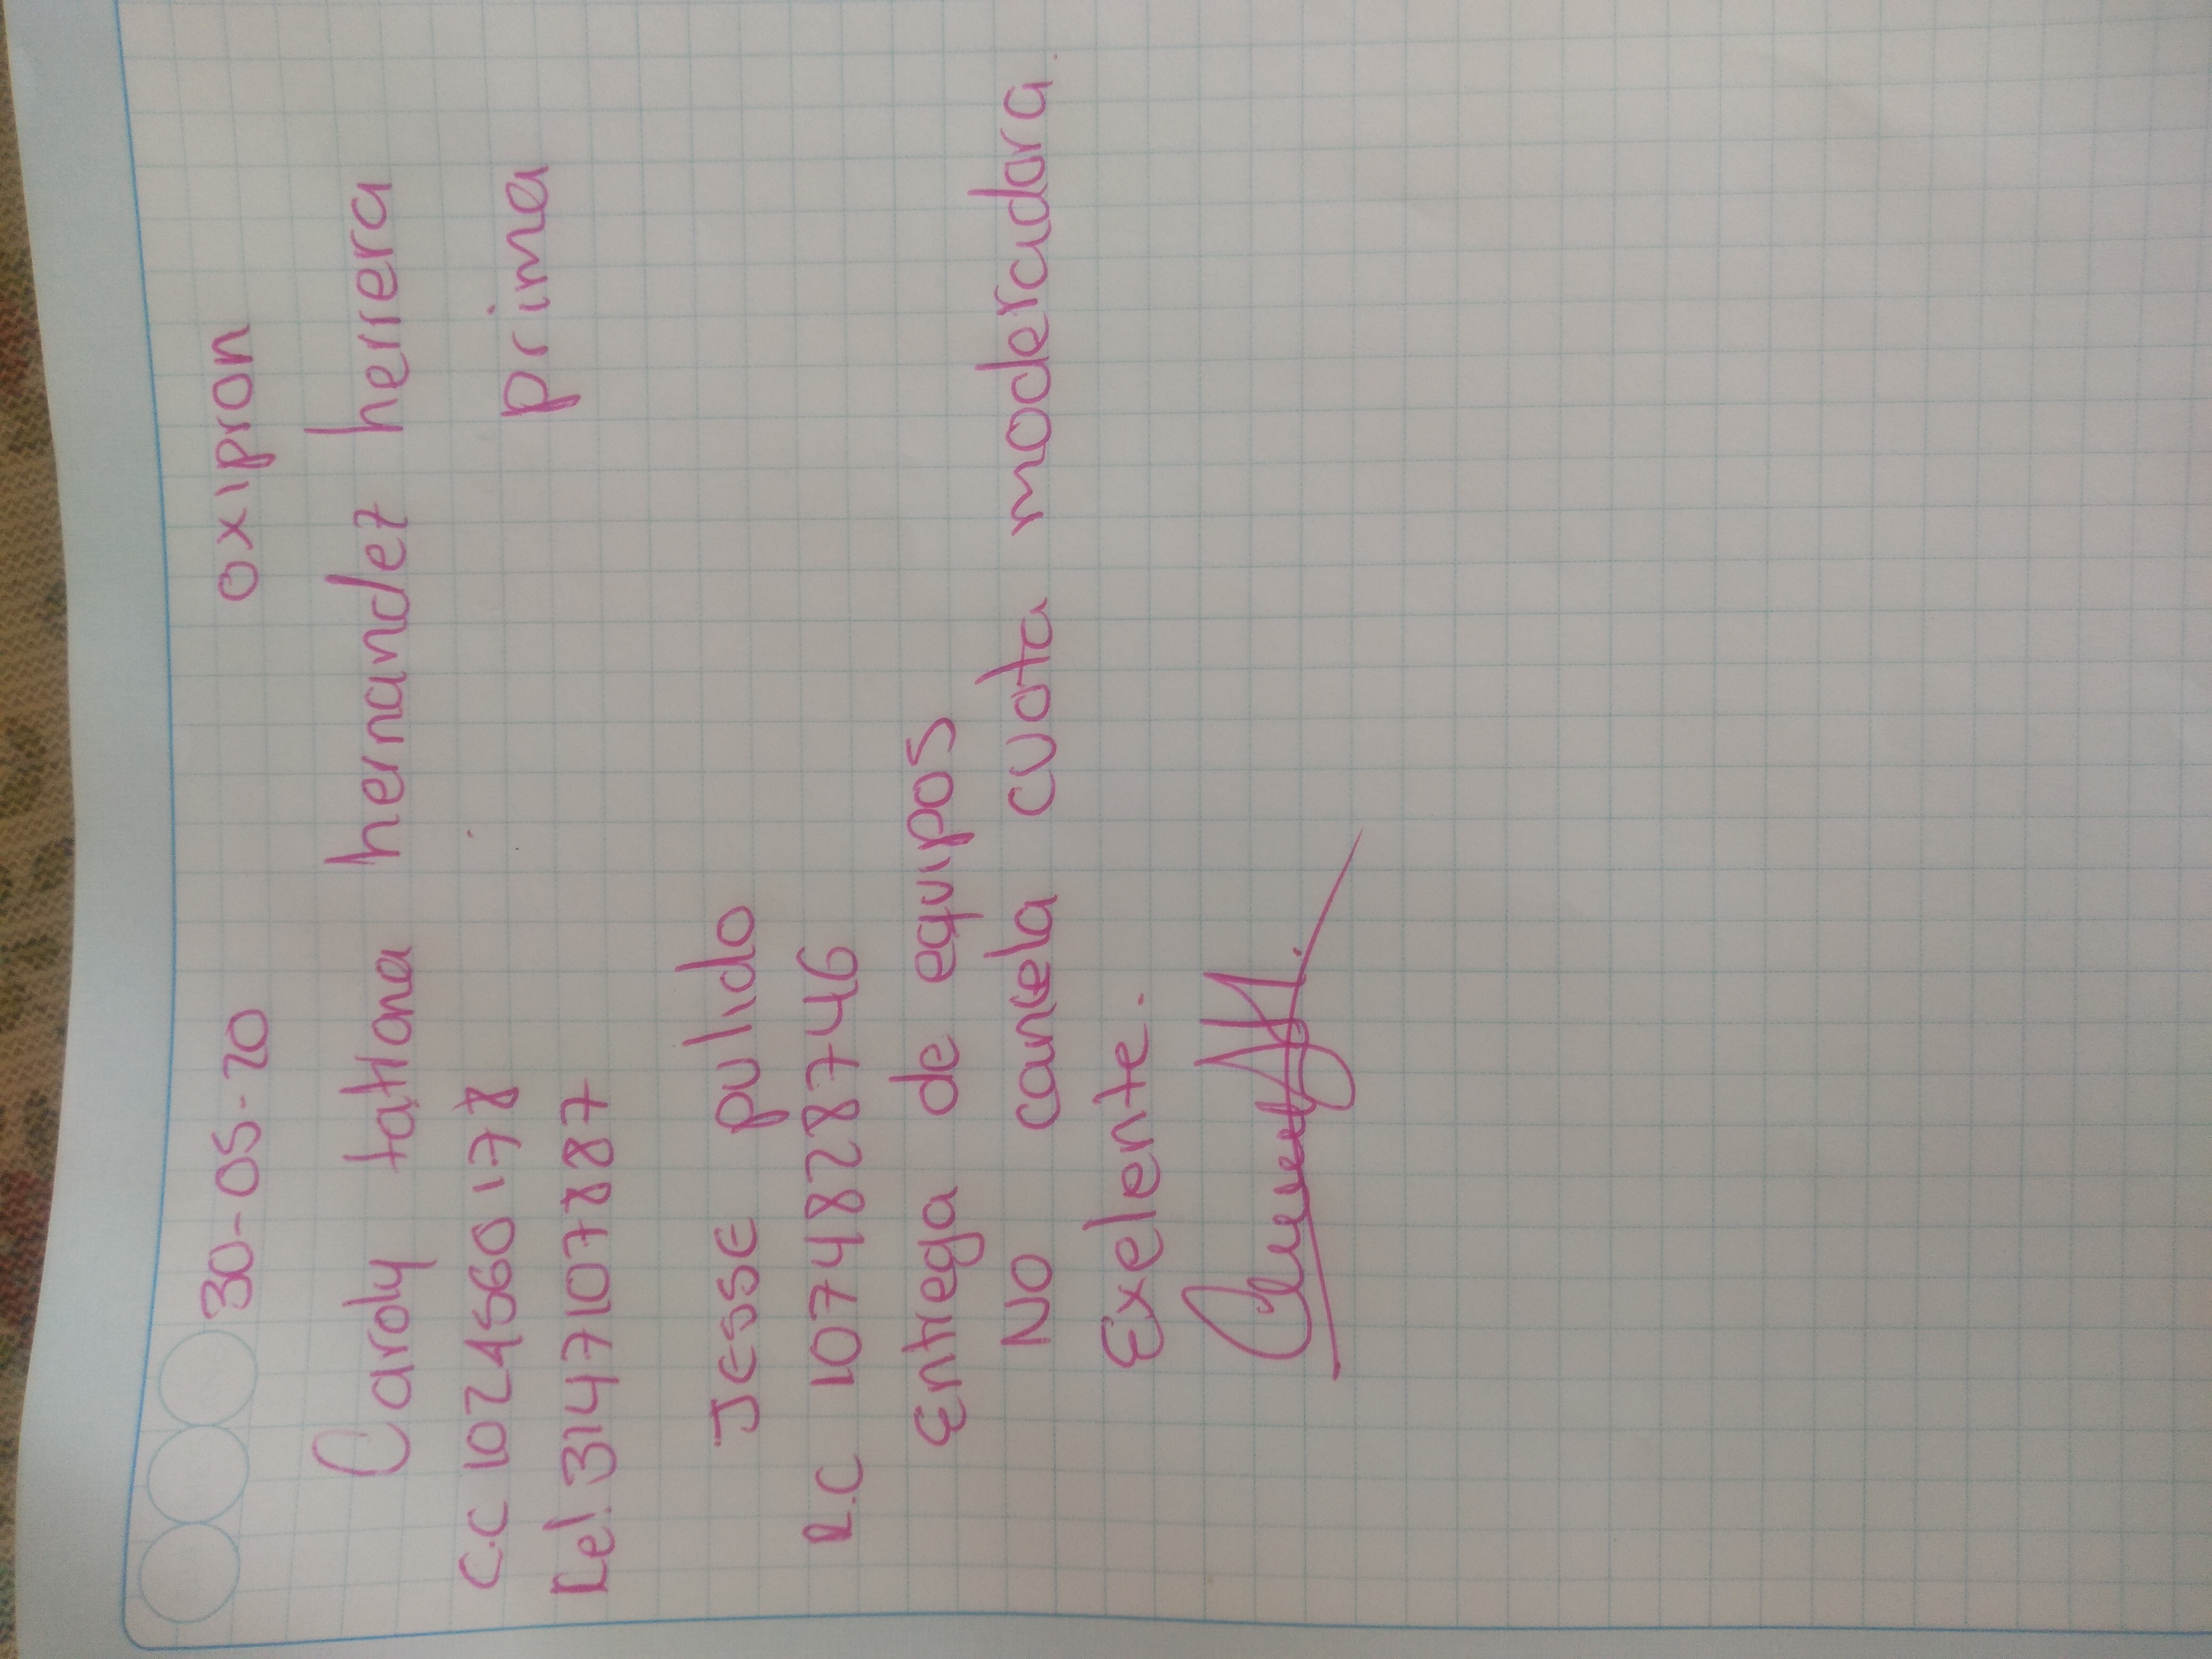 30-05-20 oxipron
Caroly tatiana hernandez herrera
C.C 1024560178 prima
tel: 3147107887
JESSE pulido
R.C 1074828746
Entrega de equipos
NO cancela cuota moderadora.
Exelente.